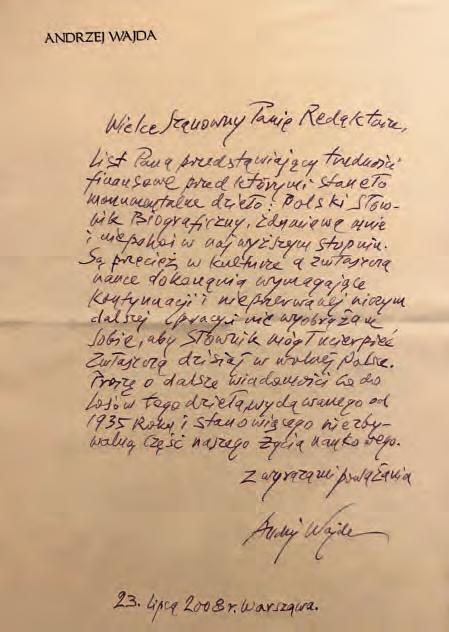 ANDRZEJ WAJDA
Wielce Szanowny Panie Redaktorze,
List Pana przedstawiający trudności
finansowe przed którymi stanęło
monumentalne dzieło: Polski Słow-
nik Biograficzny, zdumiewa mnie
i niepokoi w najwyższym stopniu.
Są przecież w kulturze a zwłaszcza
nauce dokonania wymagające
kontynuacji i nieprzerwanej niczym
dalszej pracy i nie wyobrażam
sobie, aby Słownik mógł ucierpieć
zwłaszcza dzisiaj w wolnej Polsce.
Proszę o dalsze wiadomości co do
losów tego dzieła, wydawanego od
1935 roku i stanowiącego niezby-
walną część naszego życia naukowego.
Z wyrazami poważania
Andrzej Wajda
23. lipca 2008 r. Warszawa.